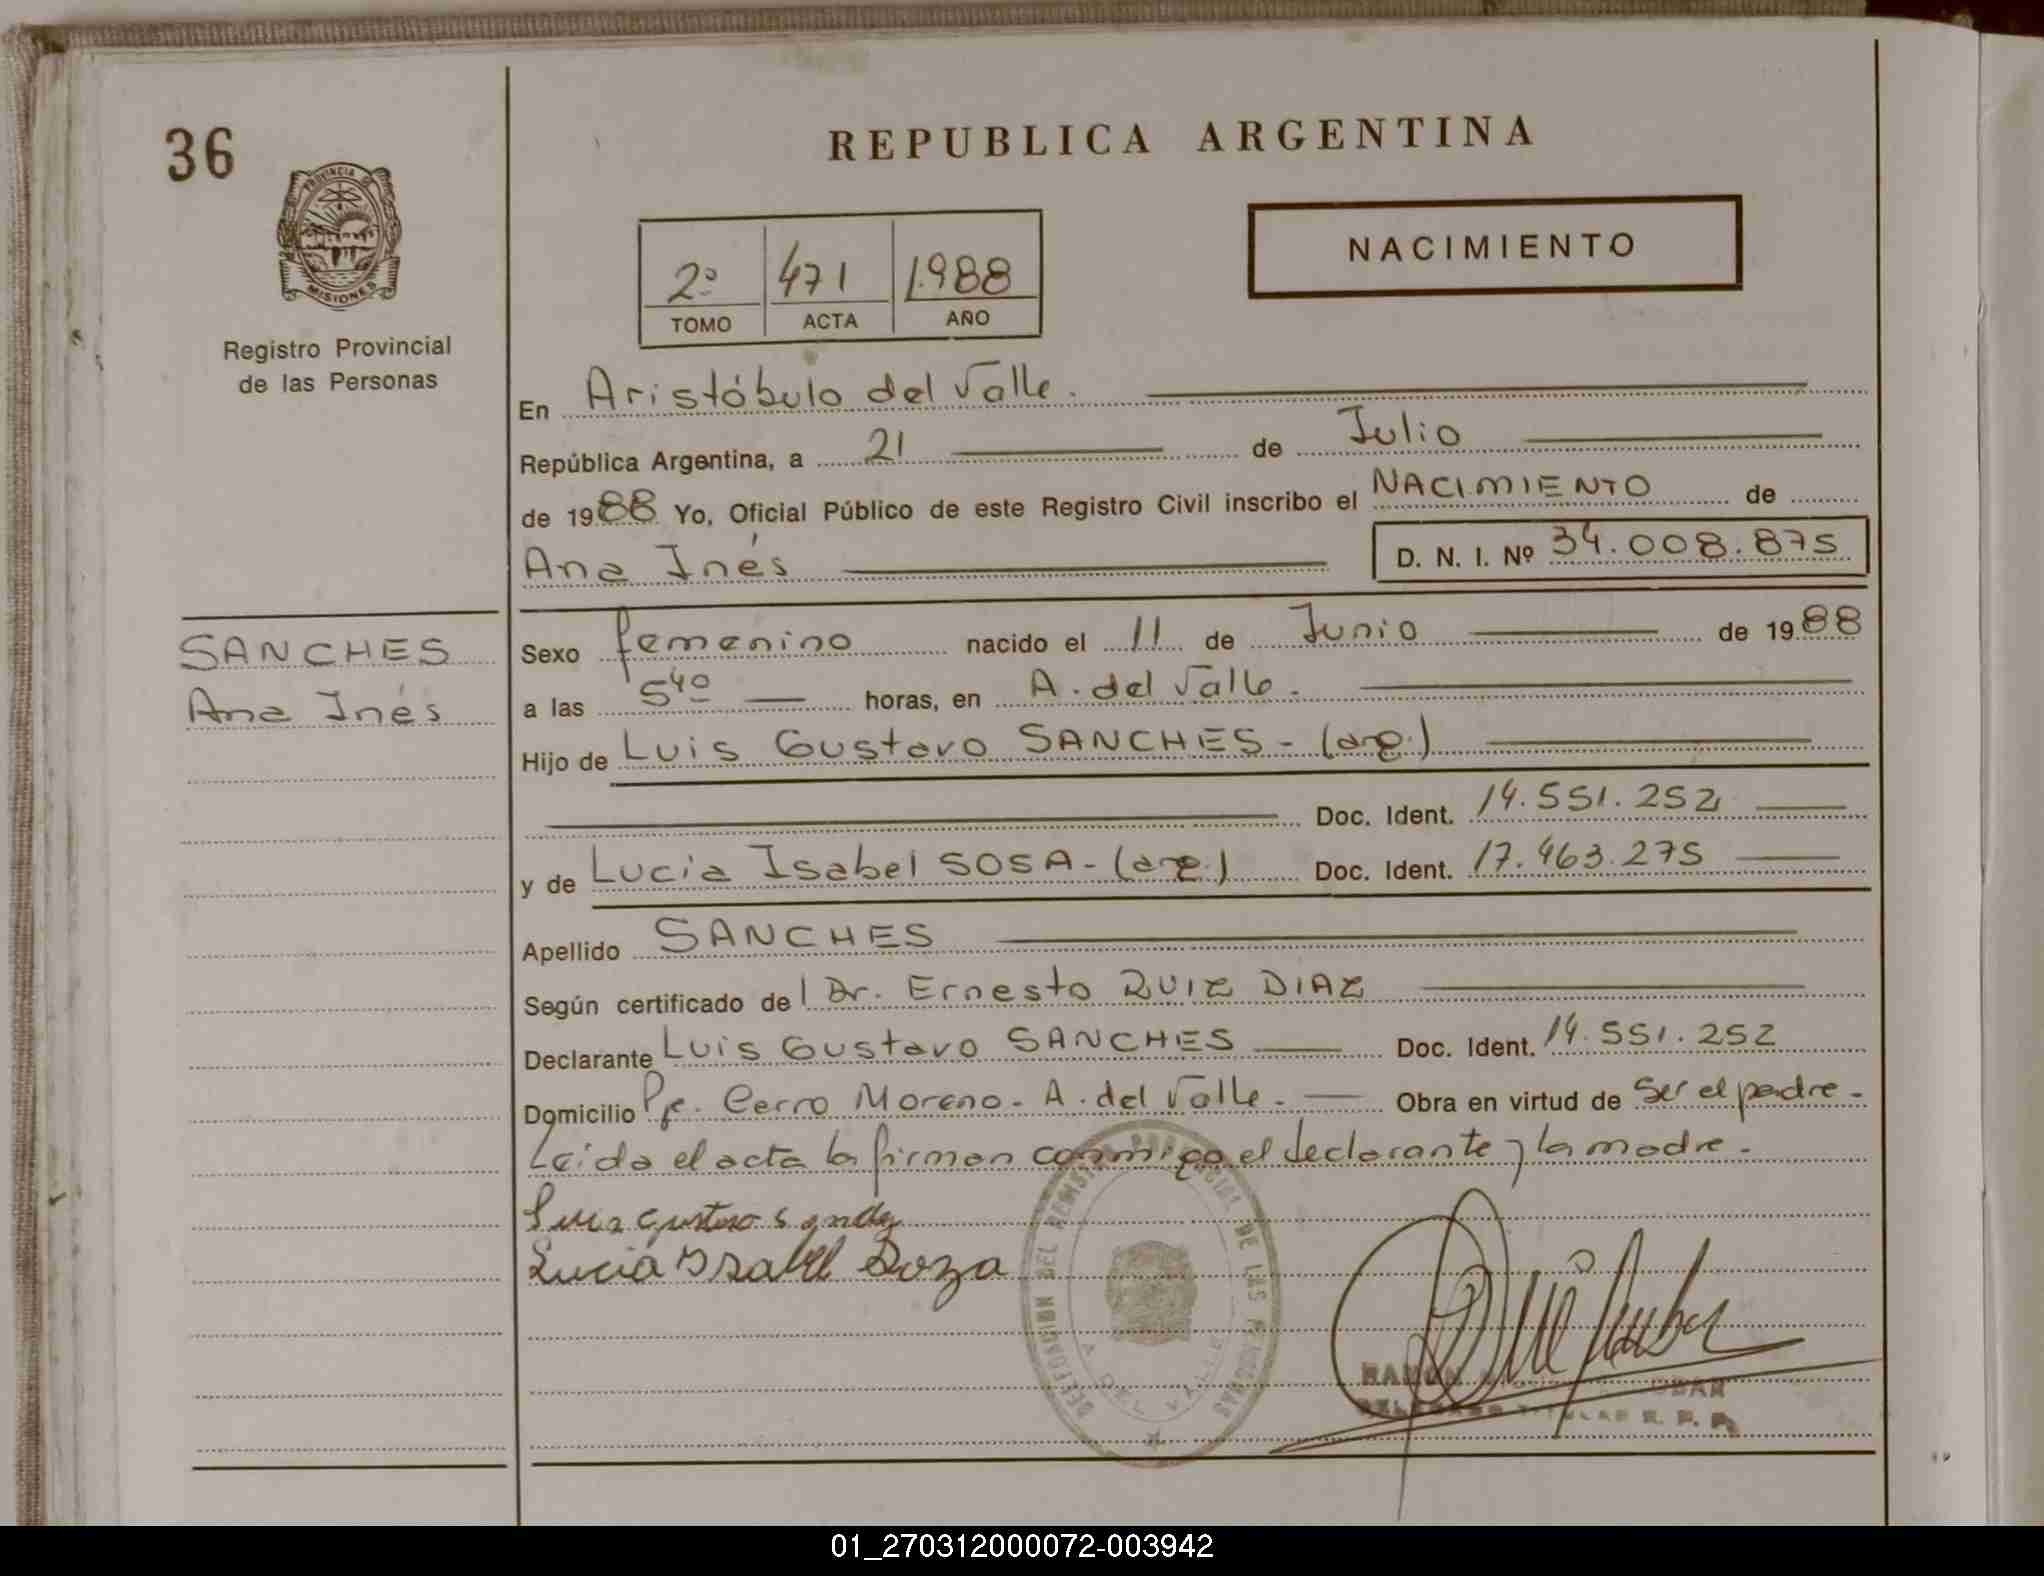 36
PROVINCIA DE
MISIONES
Registro Provincial
de las Personas
REPUBLICA ARGENTINA
NACIMIENTO
2º 471 1.988
TOMO ACTA AÑO
En Aristóbulo del Valle.
República Argentina, a 21 de Julio
de 1988 Yo, Oficial Público de este Registro Civil inscribo el NACIMIENTO de
Ana Inés D. N. I. Nº 34.008.875
SANCHES
Ana Inés
Sexo femenino nacido el 11 de Junio de 1988
a las 5 40 horas, en A. del Valle.
Hijo de Luis Gustavo SANCHES - (arg.)
Doc. Ident. 14.551.252
y de Lucia Isabel SOSA - (arg.) Doc. Ident. 17.463.275
Apellido SANCHES
Según certificado del Dr. Ernesto RUIZ DIAZ
Declarante Luis Gustavo SANCHES Doc. Ident. 14.551.252
Domicilio Pje. Cerro Moreno - A. del Valle. Obra en virtud de ser el padre -
Leida el acta la firman conmigo el declarante y la madre -
Lucia Isabel Soza
DELEGACION DEL REGISTRO PROVINCIAL DE LAS PERSONAS
A. DEL VALLE
RAMON
TITULAR R. P. P.
01_270312000072-003942